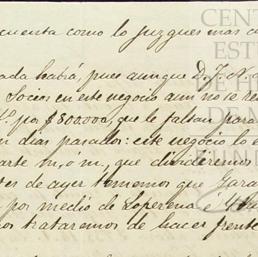 cuenta como lo juzgues mas c
ada habia, pues aunque D. J. A.
Socios en este negocio aun no se re
por $500.000, que le faltan para
n dias pasados: este negocio lo e
arte m. o m., que dividiremos
tes de ayer tememos que Gara
por medio de Loperena é
os trataremos de hacer frente
CENT
EST
DE H
DE